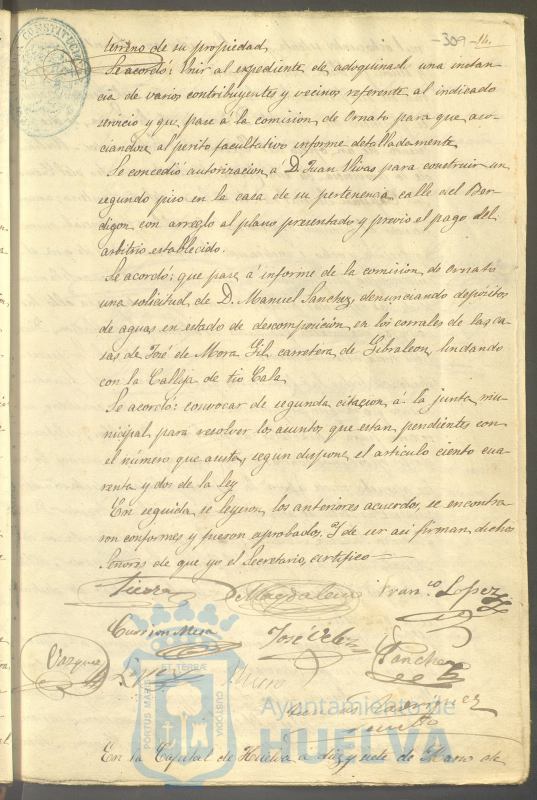 -309- 14.
terreno de su propiedad
Se acordó: Unir al expediente de adoquinado una instan-
cia de varios contribuyentes y vecinos referente al indicado
servicio y que pase á la comision de Ornato para que aso-
ciandose al perito facultativo informe detalladamente
Se concedió autorizacion á D. Juan Vivas para construir un
segundo piso en la casa de su pertenencia calle del Ber-
digon con arreglo al plano presentado y previo el pago del
arbitrio establecido.
Se acordó: que pase á informe de la comision de Ornato
una solicitud de D. Manuel Sanchez, denunciando depósitos
de aguas en estado de descomposicion en los corrales de las ca-
sas de José de Mora Gil carretera de Gibraleon, lindando
con la Calleja de tio Cala
Se acordó: convocar de segunda citacion á la junta mu-
nicipal para resolver los asuntos que estan pendientes con
el número que asista, segun dispone el articulo ciento cua-
renta y dos de la ley
En seguida se leyeron los anteriores acuerdos, se encontra-
ron conformes y fueron aprobados. Y de ser asi firman dichos
Señores de que yo el Secretario, certifico
Sierra Magdalena Fran.co Lopez
Mesa José Velez Sanchez
Vazquez Lopez
PORTUS MARIS ET TERRÆ CUSTODIA
Ayuntamiento de
HUELVA
En la Capital de Huelva á diez y siete de Marzo de